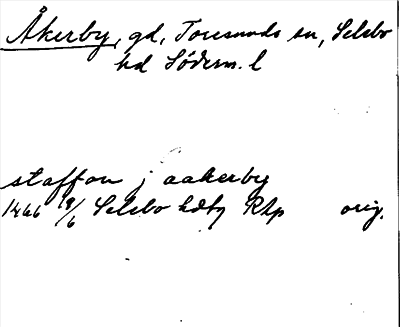 Åkerby, gd, Toresunds sn, Selebo
hd Söderm. l
staffan j aakerby
1466 9/6 Selebo hdtg Rsp orig.